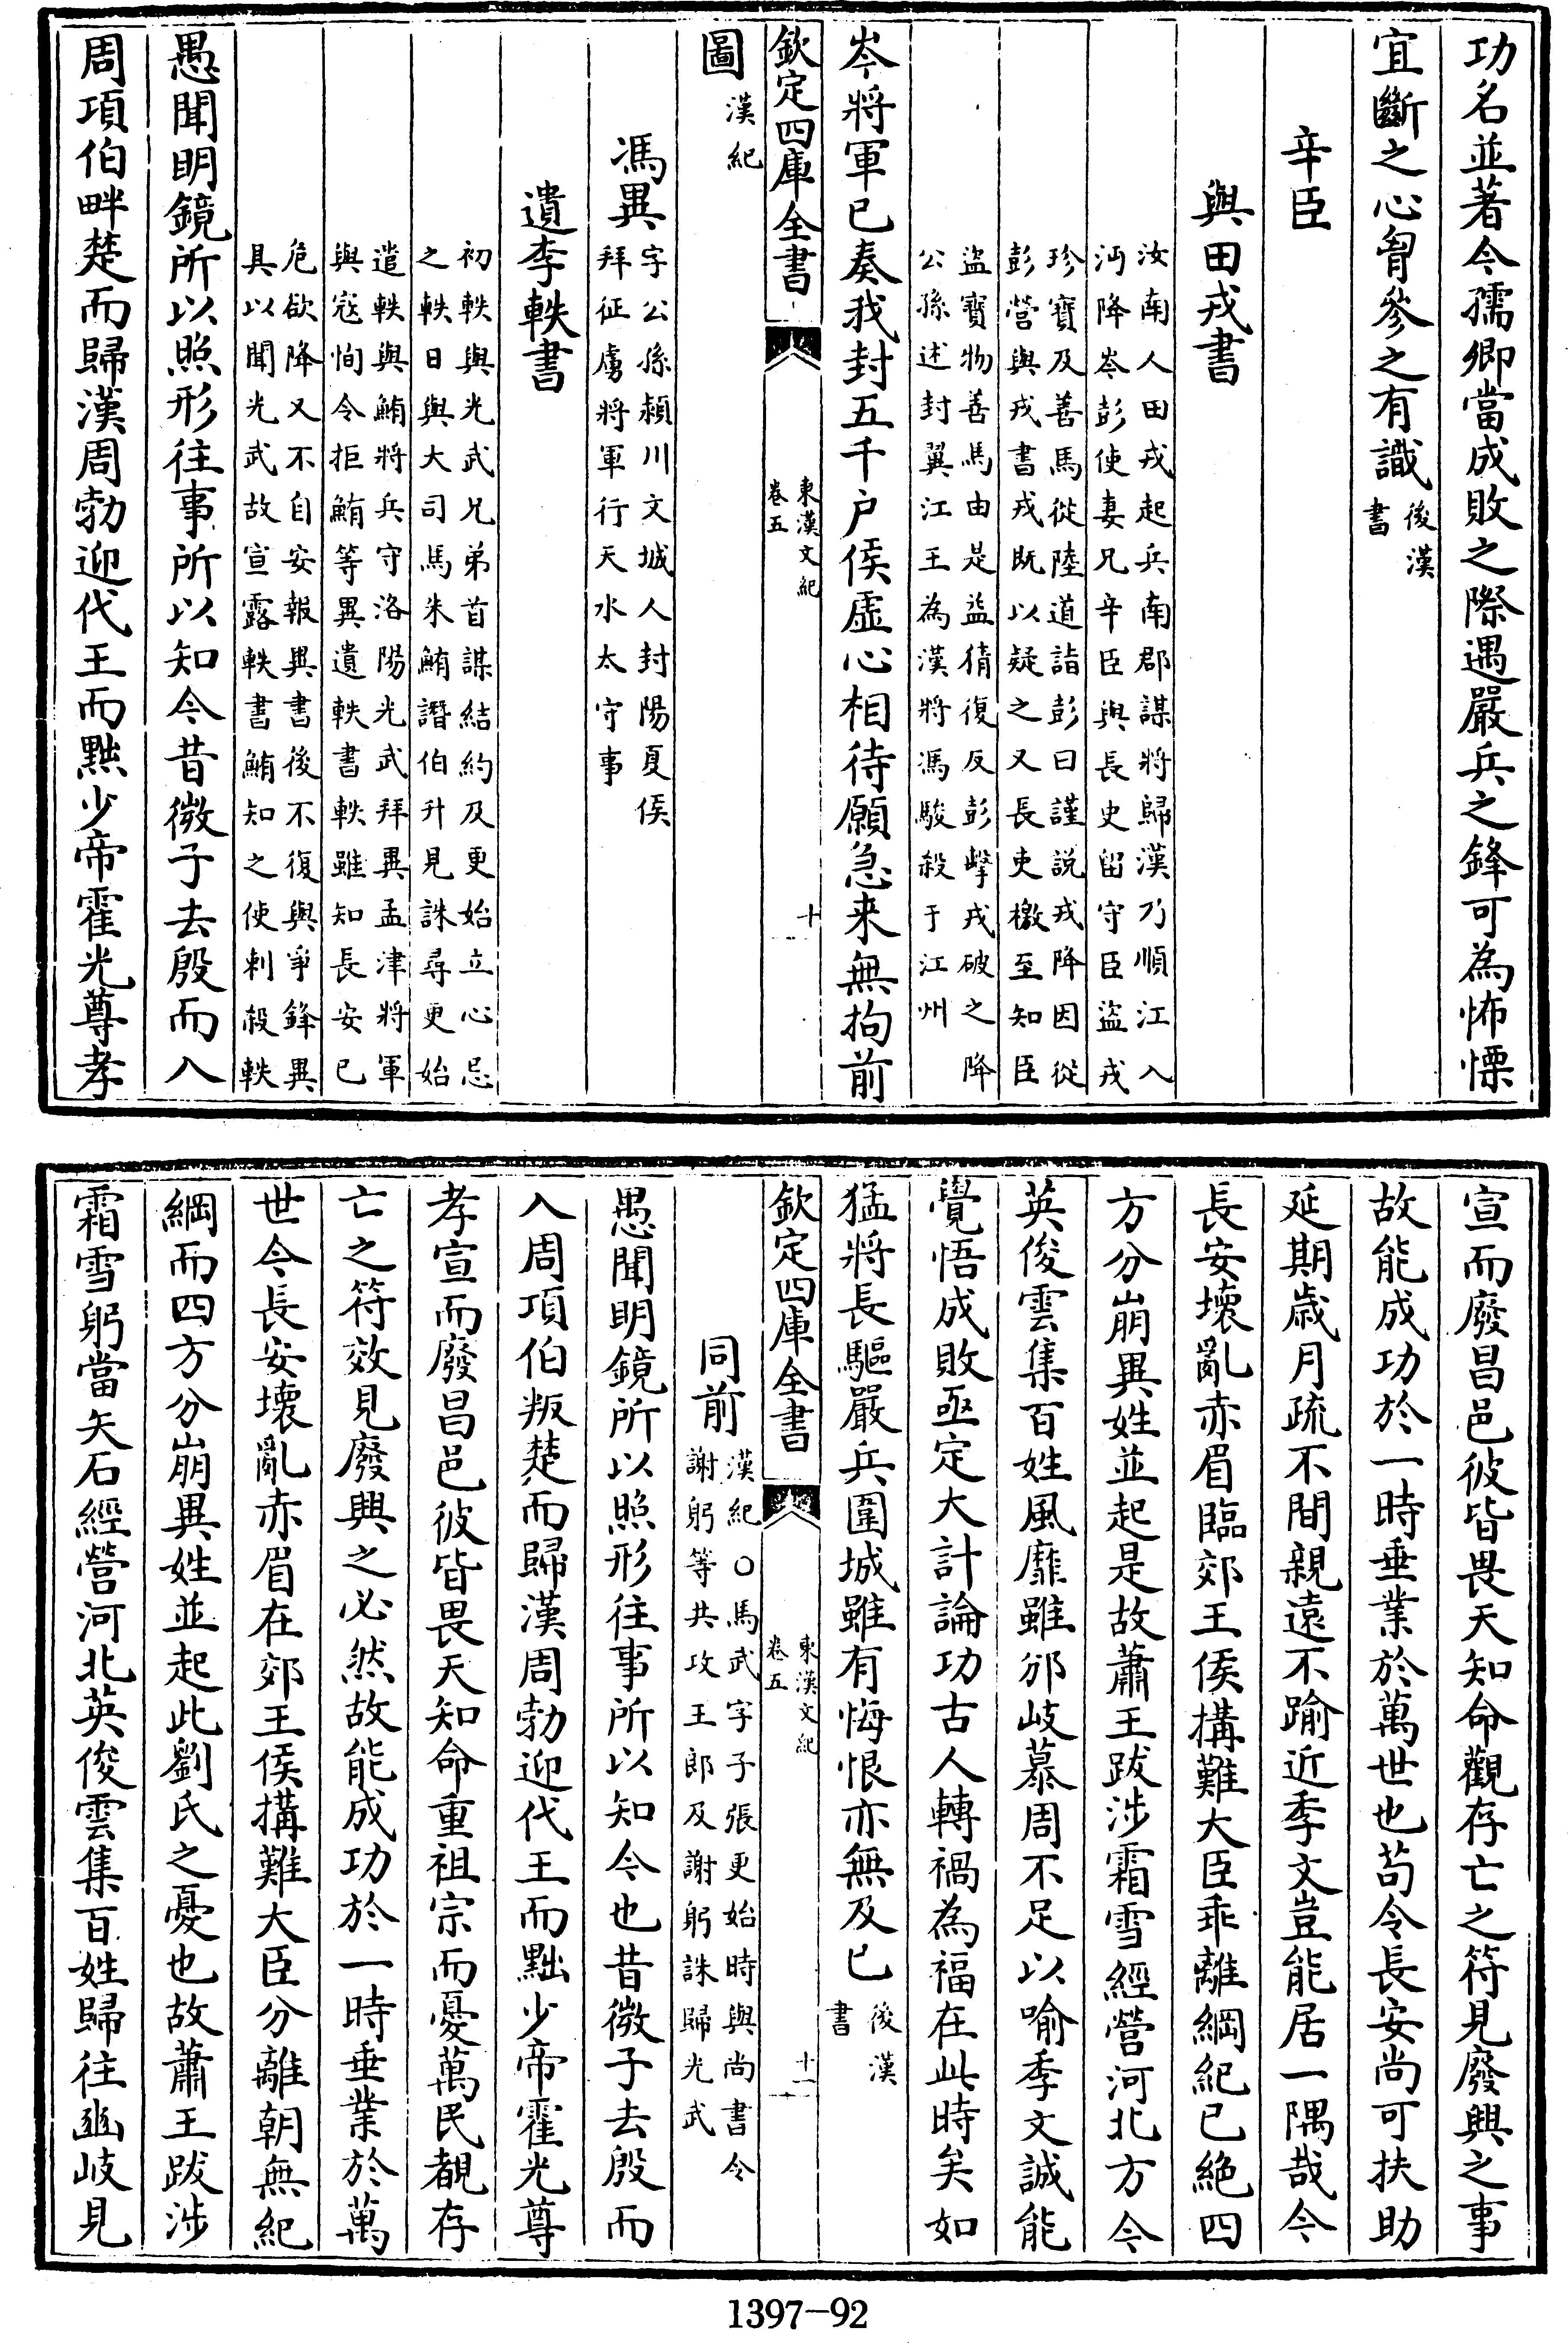 功名並著今孺卿當成敗之際遇嚴兵之鋒可為怖慄
宜斷之心胷參之有識後漢
書
辛臣
與田戎書
汝南人田戎起兵南郡謀將歸漢乃順江入
沔降岑彭使妻兄辛臣與長史留守臣盜戎
珍寶及善馬從陸道詣彭曰謹説戎降因從
彭營與戎書戎既以疑之又長吏檄至知臣
盜寶物善馬由是益猜復反彭擊戎破之降
公孫述封翼江王為漢將馮駿殺于江州
岑將軍已奏我封五千户侯虛心相待願急來無拘前
欽定四庫全書
東漢文紀
卷五
十
圖漢紀
馮異字公孫潁川文城人封陽夏侯
拜征虜將軍行天水太守事
遺李軼書
初軼與光武兄弟首謀結約及更始立心忌
之軼日與大司馬朱鮪譖伯升見誅尋更始
遣軼與鮪將兵守洛陽光武拜異孟津將軍
與寇恂令拒鮪等異遺軼書軼雖知長安已
危欲降又不自安報異書後不復與爭鋒異
具以聞光武故宣露軼書鮪知之使刺殺軼
愚聞明鏡所以照形往事所以知今昔微子去殷而入
周項伯畔楚而歸漢周勃迎代王而黜少帝霍光尊孝
宣而廢昌邑彼皆畏天知命覩存亡之符見廢興之事
故能成功於一時垂業於萬世也苟令長安尚可扶助
延期歲月疏不間親遠不踰近季文豈能居一隅哉今
長安壞亂赤眉臨郊王侯搆難大臣乖離綱紀已絶四
方分崩異姓並起是故蕭王跋涉霜雪經營河北方今
英俊雲集百姓風靡雖邠岐慕周不足以喻季文誠能
覺悟成敗亟定大計論功古人轉禍為福在此時矣如
猛將長驅嚴兵圍城雖有悔恨亦無及已後漢
書
欽定四庫全書
東漢文紀
卷五
十一
同前漢紀○馬武字子張更始時與尚書令
謝躬等共攻王郎及謝躬誅歸光武
愚聞明鏡所以照形往事所以知今也昔微子去殷而
入周項伯叛楚而歸漢周勃迎代王而黜少帝霍光尊
孝宣而廢昌邑彼皆畏天知命重祖宗而憂萬民覩存
亡之符效見廢興之必然故能成功於一時垂業於萬
世今長安壞亂赤眉在郊王侯搆難大臣分離朝無紀
綱而四方分崩異姓並起此劉氏之憂也故蕭王跋涉
霜雪躬當矢石經營河北英俊雲集百姓歸往豳岐見
1397-92